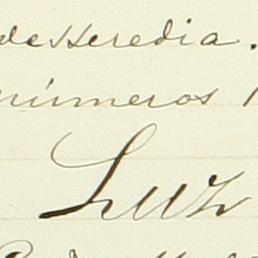 de Heredia.
números
Luz